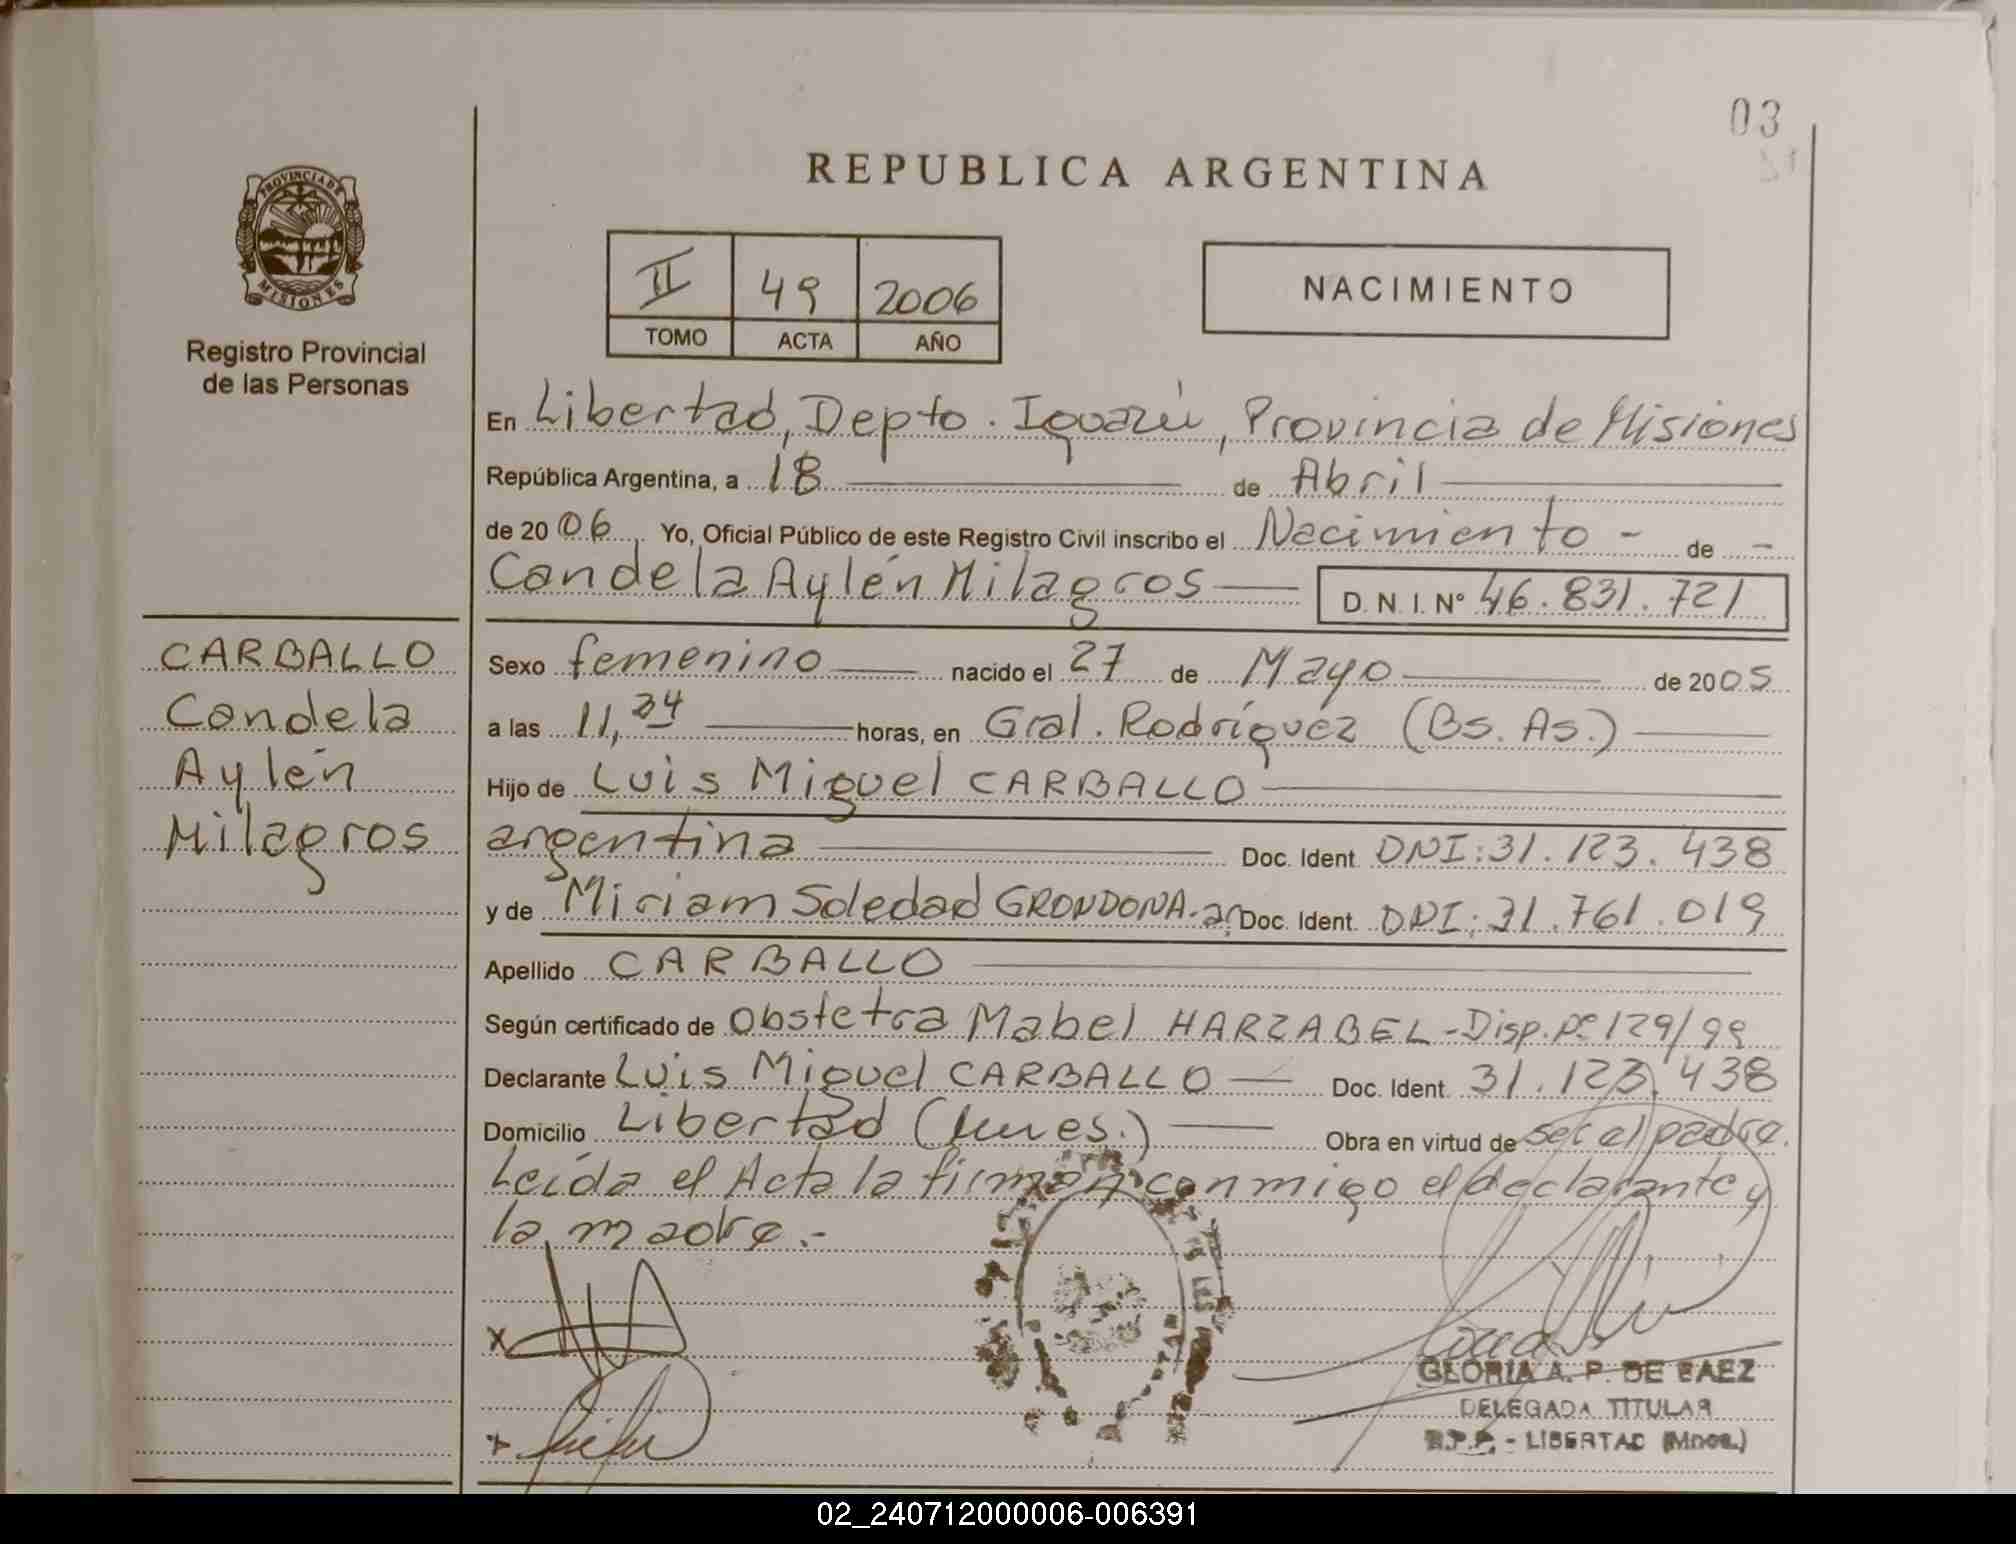 03
REPUBLICA ARGENTINA
PROVINCIA DE
MISIONES
Registro Provincial
de las Personas
II 49 2006
TOMO ACTA AÑO
NACIMIENTO
En Libertad, Depto. Iguazú, Provincia de Misiones
República Argentina, a 18 de Abril
de 2006. Yo, Oficial Público de este Registro Civil inscribo el Nacimiento - de -
Candela Aylén Milagros D. N. I. Nº 46.831.721
CARBALLO
Candela
Aylén
Milagros
Sexo femenino nacido el 27 de Mayo de 2005
a las 11,34 horas, en Gral. Rodríguez (Bs. As.)
Hijo de Luis Miguel CARBALLO
argentina Doc. Ident. DNI: 31.123.438
y de Miriam Soledad GRONDONA.-ar. Doc. Ident. DNI: 31.761.019
Apellido CARBALLO
Según certificado de Obstetra Mabel HARZABEL - Disp. 129/99
Declarante Luis Miguel CARBALLO Doc. Ident. 31.123.438
Domicilio Libertad (Mnes.) Obra en virtud de ser el padre.
Leída el Acta la firman conmigo el declarante y
la madre.-
GLORIA A. P. DE BAEZ
DELEGADA TITULAR
R.P.P. - LIBERTAD (Mnes.)
02_240712000006-006391